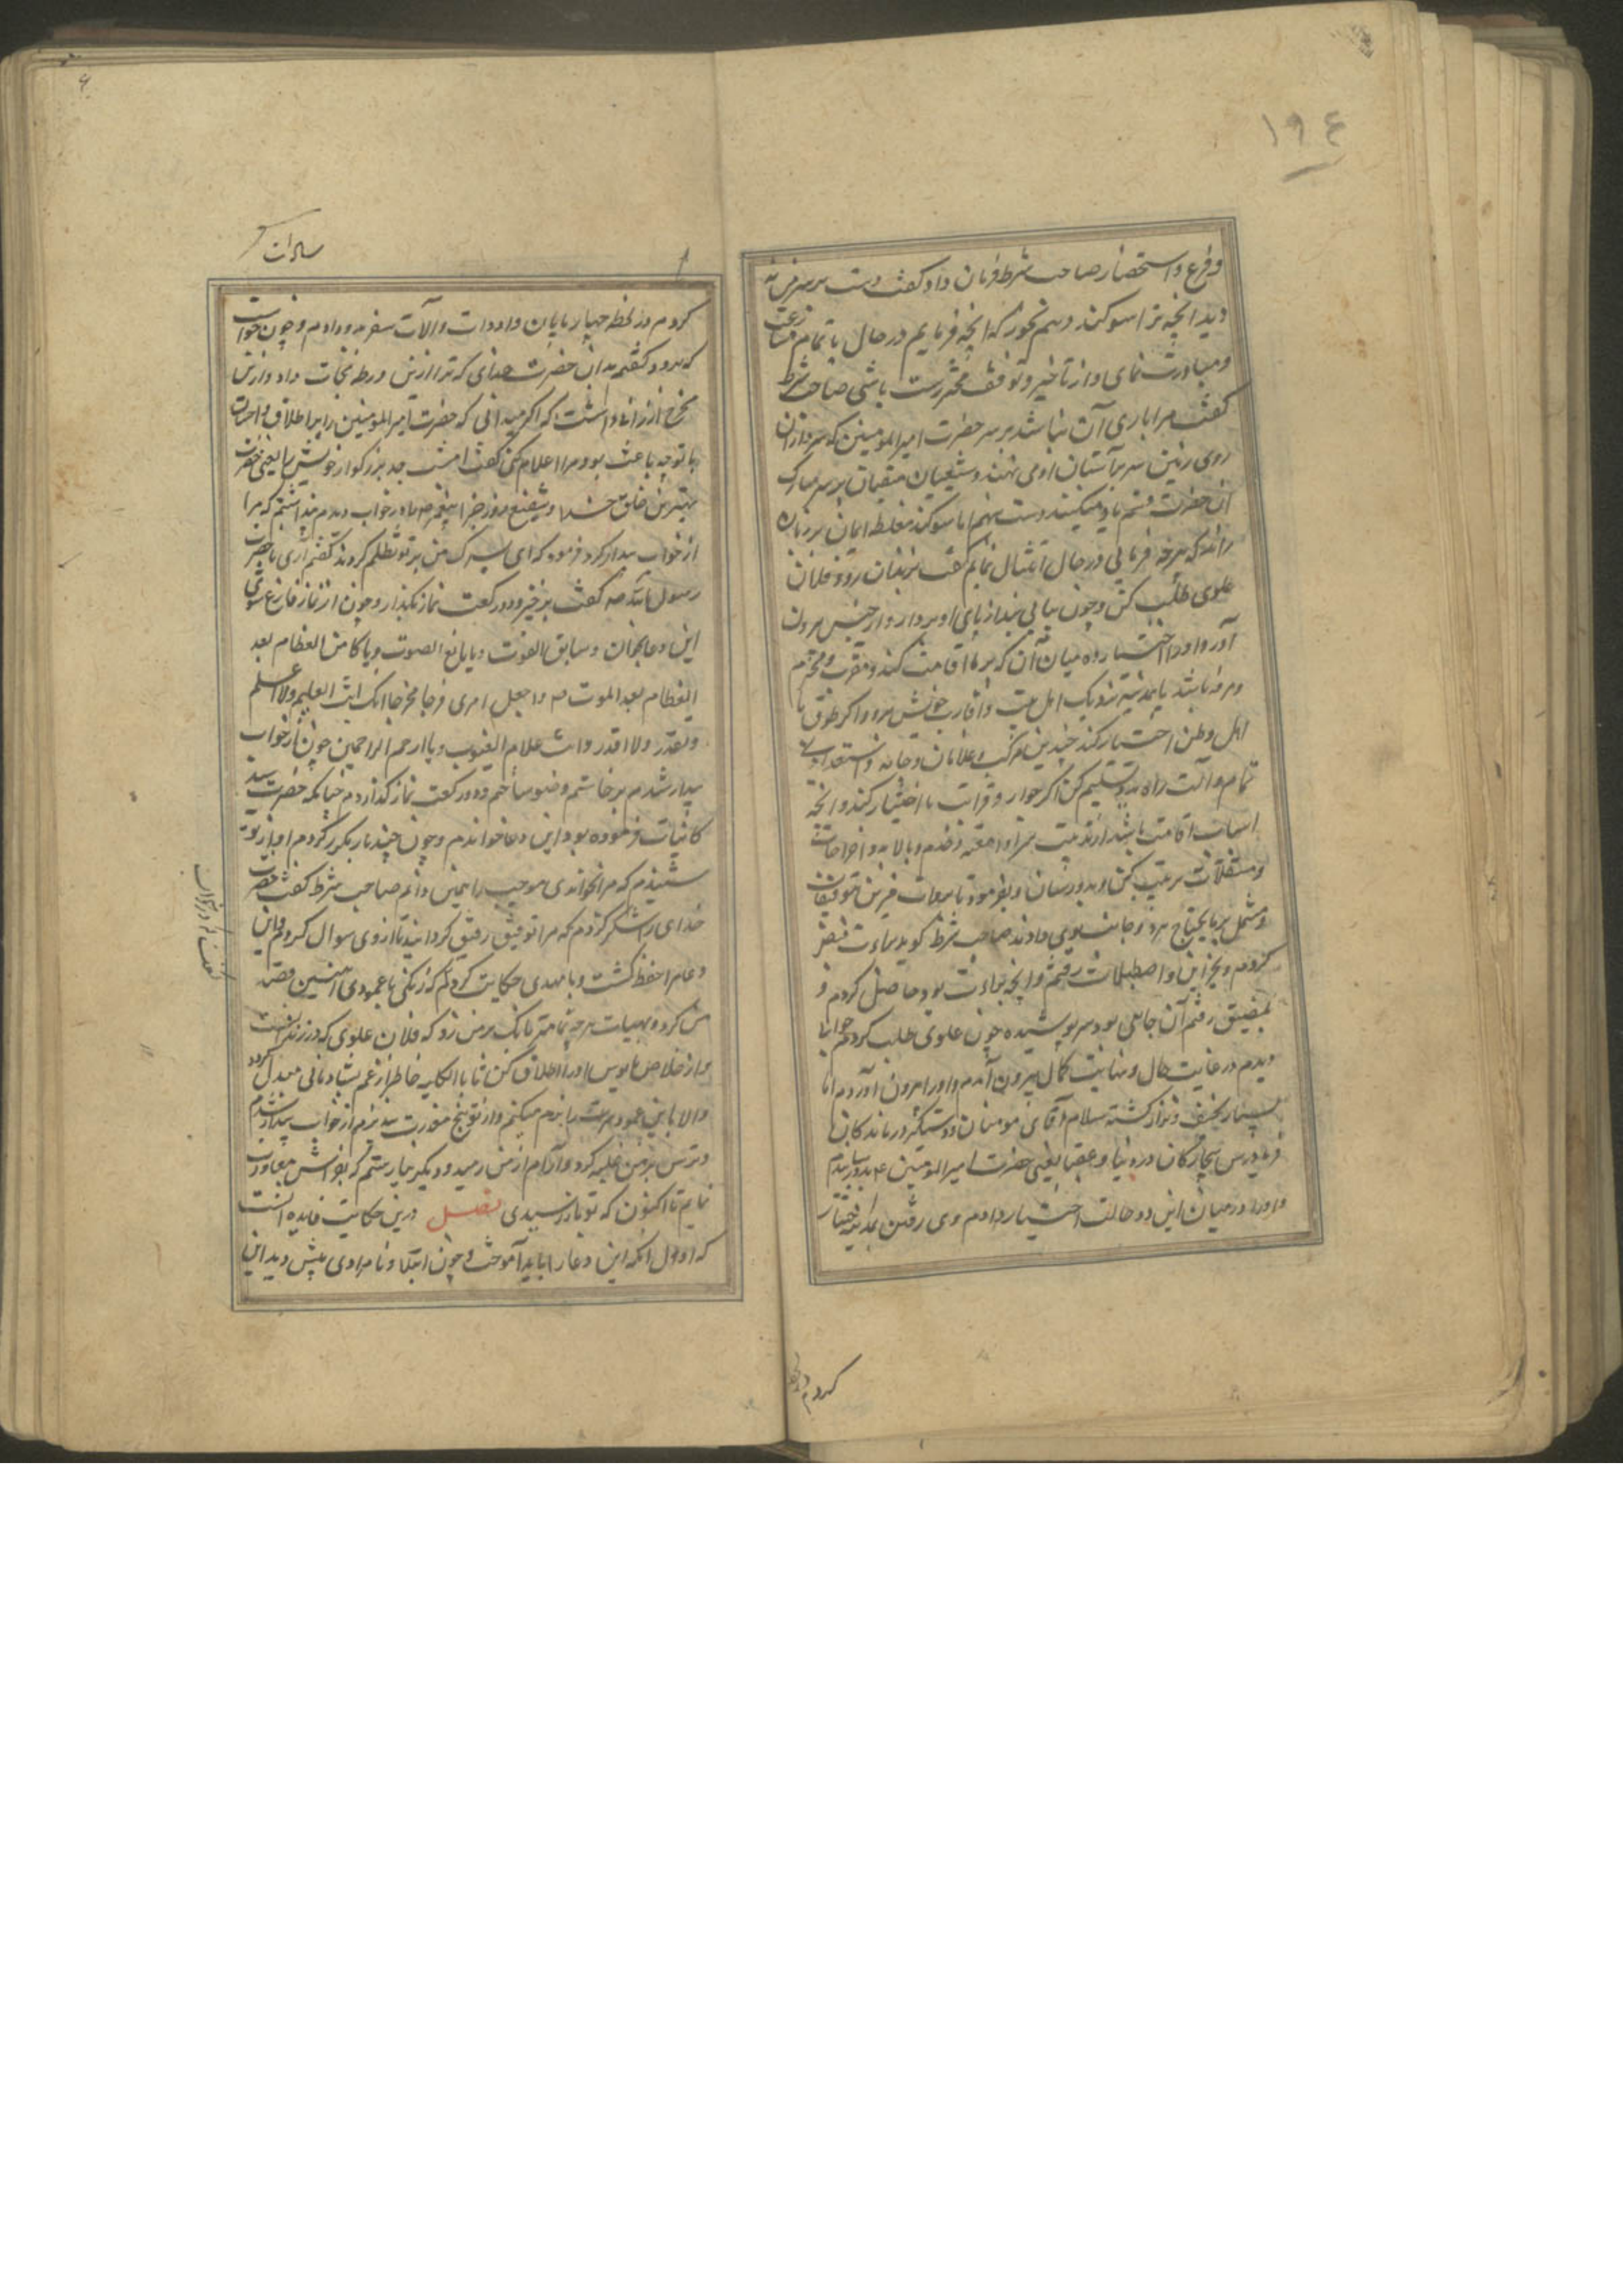 ١٩٤
و فزع و استحضار صاحب شرط فرمان داد گفت دست بر سر من نه
و بدانچه ترا سوگند دهم بخور که آنچه فرمایم در حال با تمام مسارعت
و مبادرت نمای و از تاخیر و توقف محترز باشی صاحب شرط
گفت مرا یارای آن نباشد بر سر حضرت امیرالمومنین که سروران
روی زمین سر بر آستان او می نهند و شیعیان متقیان بر سر مبارک
آن حضرت قسم یاد میکنند دست نهم اما سوگند مغلظه ایمان بر زبان
راند که هرچه فرمائی در حال امتثال نمایم گفت بزندان رو و فلان
علوی طلب کن و چون بیابی بند از پای او بردار و از حبس بیرون
آور و او را اختیار ده میان آن که بر ما اقامت کند و مقرب و محترم
و مرفه باشد یا بمدینه نزدیک اهل بیت و اقارب خویش رود و اگر طرف
اهل وطن اختیار کند چندین مرکب و غلامان و جامه و استعداد
تمام و آلت راه بدو تسلیم کن و اگر جوار و قرابت ما اختیار کند و آنچه
اسباب اقامت باشد از ترتیب سرا و امتعه و خدم و بالابد و اخراجات
و مستقلات ترتیب کن و بدو رسان و بفرمود تا بروات
و مشتمل بر مایحتاج هر دو جانب بوی دادند صاحب شرط گوید براءت قبض
کردم و بخزاین و اصطبلات رفتم و آنچه براءت بود حاصل کردم و
بمضیق رفتم آن جاهی بود سرپوشیده چون علوی طلب کردم جوانی
دیدم در غایت جمال و نهایت کمال بیرون آمدم و او را بیرون آوردم اما
بسیار نحیف و نزار گشته سلام آقای مومنان و دستگیر درماندگان
فریادرس بیچارگان در دنیا و عقبا یعنی حضرت امیرالمومنین ع بدو رسانیدم
و او را در میان این دو حالت اختیار دادم وی رفتن بمدینه اختیار
کردم در لحظه
سادات
کردم در لحظه چهارپایان و ادوات و آلات سفر بدو دادم و چون خواست
که برود گفتم بدان حضرت خدای که ترا از این ورطه نجات داد و ازین
مخرج ارزانی داشت که اگر میدانی که حضرت امیرالمومنین را بر اطلاق و احسان
با تو چه باعث بود مرا اعلام کن گفت امشب جد بزرگوار خویش را یعنی حضرت
بهترین خلق خدا و شفیع روز جزا پیغمبر ص را در خواب دیدم پنداشتم که مرا
از خواب بیدار کرد فرمود که ای پسرک من بر تو تظلم کردند گفتم آری یا حضرت
رسول الله ص گفت برخیز و دو رکعت نماز بگذار و چون از نماز فارغ شوی
این دعا بخوان و سابق الفوت و یا سامع الصوت و یا کاسی العظام بعد
العظام بعد الموت ص و اجعل امری فرجا مخرجا انک انت العلیم و لا اعلم
و تقدر و لا اقدر و انت علام الغیوب و یا ارحم الراحمین چون از خواب
بیدار شدم برخاستم وضو ساختم و دو رکعت نماز گذاردم چنانکه حضرت سید
کاینات فرموده بود این دعا خواندم و چون چند بار مکرر کردم آواز تو
شنیدم که مرا خواندی موجب را همین دانم صاحب شرط گفت حضرت
خدای را شکر کردم که مرا توفیق رفیق گردانید تا از وی سوال کردم و این
دعا مرا حفظ گشت و با مهدی حکایت کردم که زنگی با عمودی آهنین قصد
من کرد و بهیبات هرچه تمامتر بانگ بر من زد که فلان علوی که در زندانست
و از خلاص مایوس او را اطلاق کن تا بالکلیه خاطر از غم بشادمانی مبدل کرد
و الا باین عمود سرت را نرم میکنم و از توبیخ معذرت نپذیرم از خواب بیدار شدم
و ترس بر من غلبه کرد و آرام از من رمید و دیگر نیارستم که بفراش معاودت
نمایم تا اکنون که تو باز رسیدی فصل درین حکایت فایده آنست
که اول آنکه این دعا را باید آموخت و چون ابتلا و نامرادی پیش دیده این